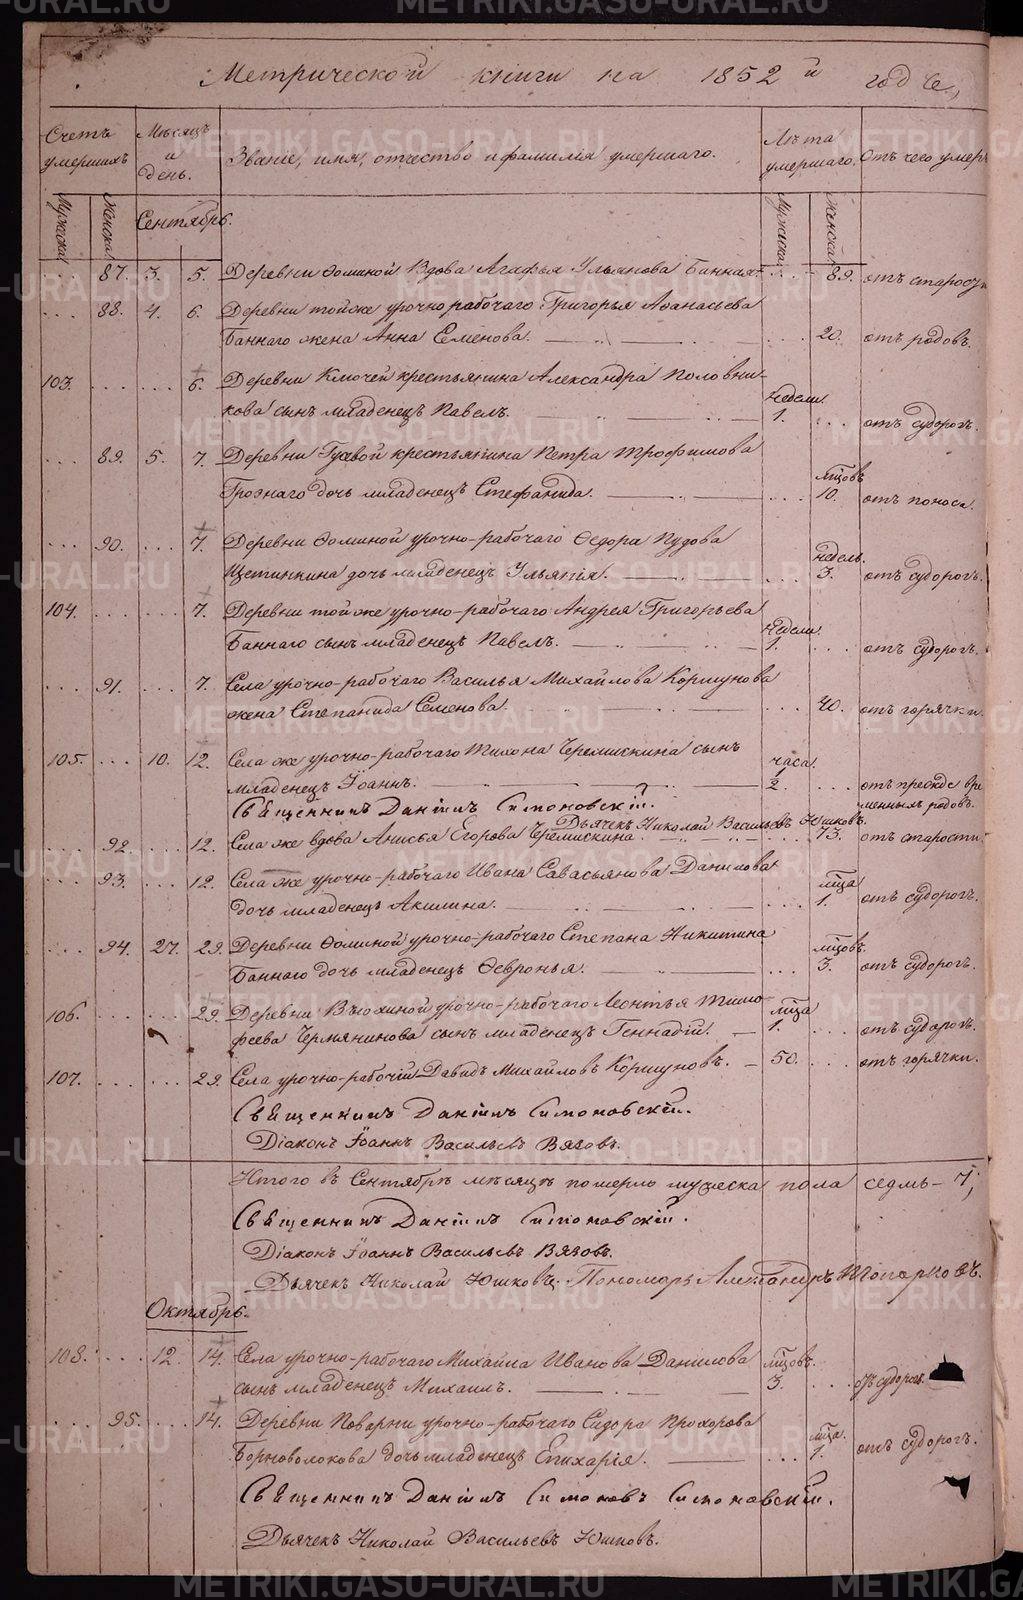 Метрической книги на 1852й год ѣ,
Счетъ умершихъ
Мѣсяцъ и день.
Званіе, имя, отчество и фамилія умершаго.
Лѣта умершаго.
отъ чего умеръ
Мужеска
Женска
Сентябрь.
Мужеска
Женска
87. 3. 5. Деревни Ѳоминой Вдова Агафья Ульянова Банная 89. отъ старости
88. 4. 6. Деревни той же урочно рабочаго Григорья Аѳанасьева
Баннаго жена Анна Семенова. 20. отъ родовъ.
103. 6. Деревни Ключей крестьянина Александра Половни-
кова сынъ младенецъ Павелъ. недели. 1. отъ судорогъ.
89. 5. 7. Деревни Гуевой крестьянина Петра Трофимова
Грознаго дочь младенецъ Стефанида. мцовъ 10. отъ поноса.
90. 7. Деревни Ѳоминой урочно-рабочаго Ѳедора Пудова
Щетинкина дочь младенецъ Ульянія. недель. 3. отъ судорогъ.
104. 7. Деревни той же урочно-рабочаго Андрея Григорьева
Баннаго сынъ младенецъ Павелъ. недели. 1. отъ судорогъ.
91. 7. Села урочно-рабочаго Василья Михайлова Коршунова
жена Степанида Семенова. 40. отъ горячки.
105. 10. 12. Села же урочно-рабочаго Тихона Черемискина сынъ
младенецъ Іоаннъ. часа. 1/2. отъ преждевре
менныхъ родовъ.
Священникъ Даніилъ Симоновскій.
Дьячекъ Николай Васильевъ Юшковъ.
92. 12. Села же вдова Анисья Егорова Черемискина 73. отъ старости.
93. 12. Села же урочно-рабочаго Ивана Савасьянова Данилова
дочь младенецъ Акилина. мца 1. отъ судорогъ.
94. 27. 29. Деревни Ѳоминой урочно-рабочаго Степана Никитина
Баннаго дочь младенецъ Ѳевронья. мцовъ. 3. отъ судорогъ.
106. 29. Деревни Вьюхиной урочно-рабочаго Леонтья Тимо-
феева Чермянинова сынъ младенецъ Геннадій. мца 1. отъ судорогъ.
107. 29. Села урочно-рабочій Давидъ Михайловъ Коршуновъ. 50. отъ горячки.
Священникъ Даніилъ Симоновскій.
Діаконъ Іоаннъ Васильевъ Вязовъ.
Итого въ Сентябрѣ мѣсяцѣ померло мужеска пола седмь - 7,
Священникъ Даніилъ Симоновскій.
Діаконъ Іоаннъ Васильевъ Вязовъ.
Дьячекъ Николай Юшковъ. Пономарь Александръ Топорковъ.
Октябрь.
108. 12. 14. Села урочно-рабочаго Михаила Иванова Данилова
сынъ младенецъ Михаилъ. мцовъ. 3. отъ судорогъ.
95. 14. Деревни Поварни урочно-рабочаго Сидора Прохорова
Борноволокова дочь младенецъ Епихарія. мца. 1. отъ судорогъ.
Священникъ Даніилъ Симоновъ Симоновскій.
Дьячекъ Николай Васильевъ Юшковъ.
METRIKI.GASO-URAL.RU